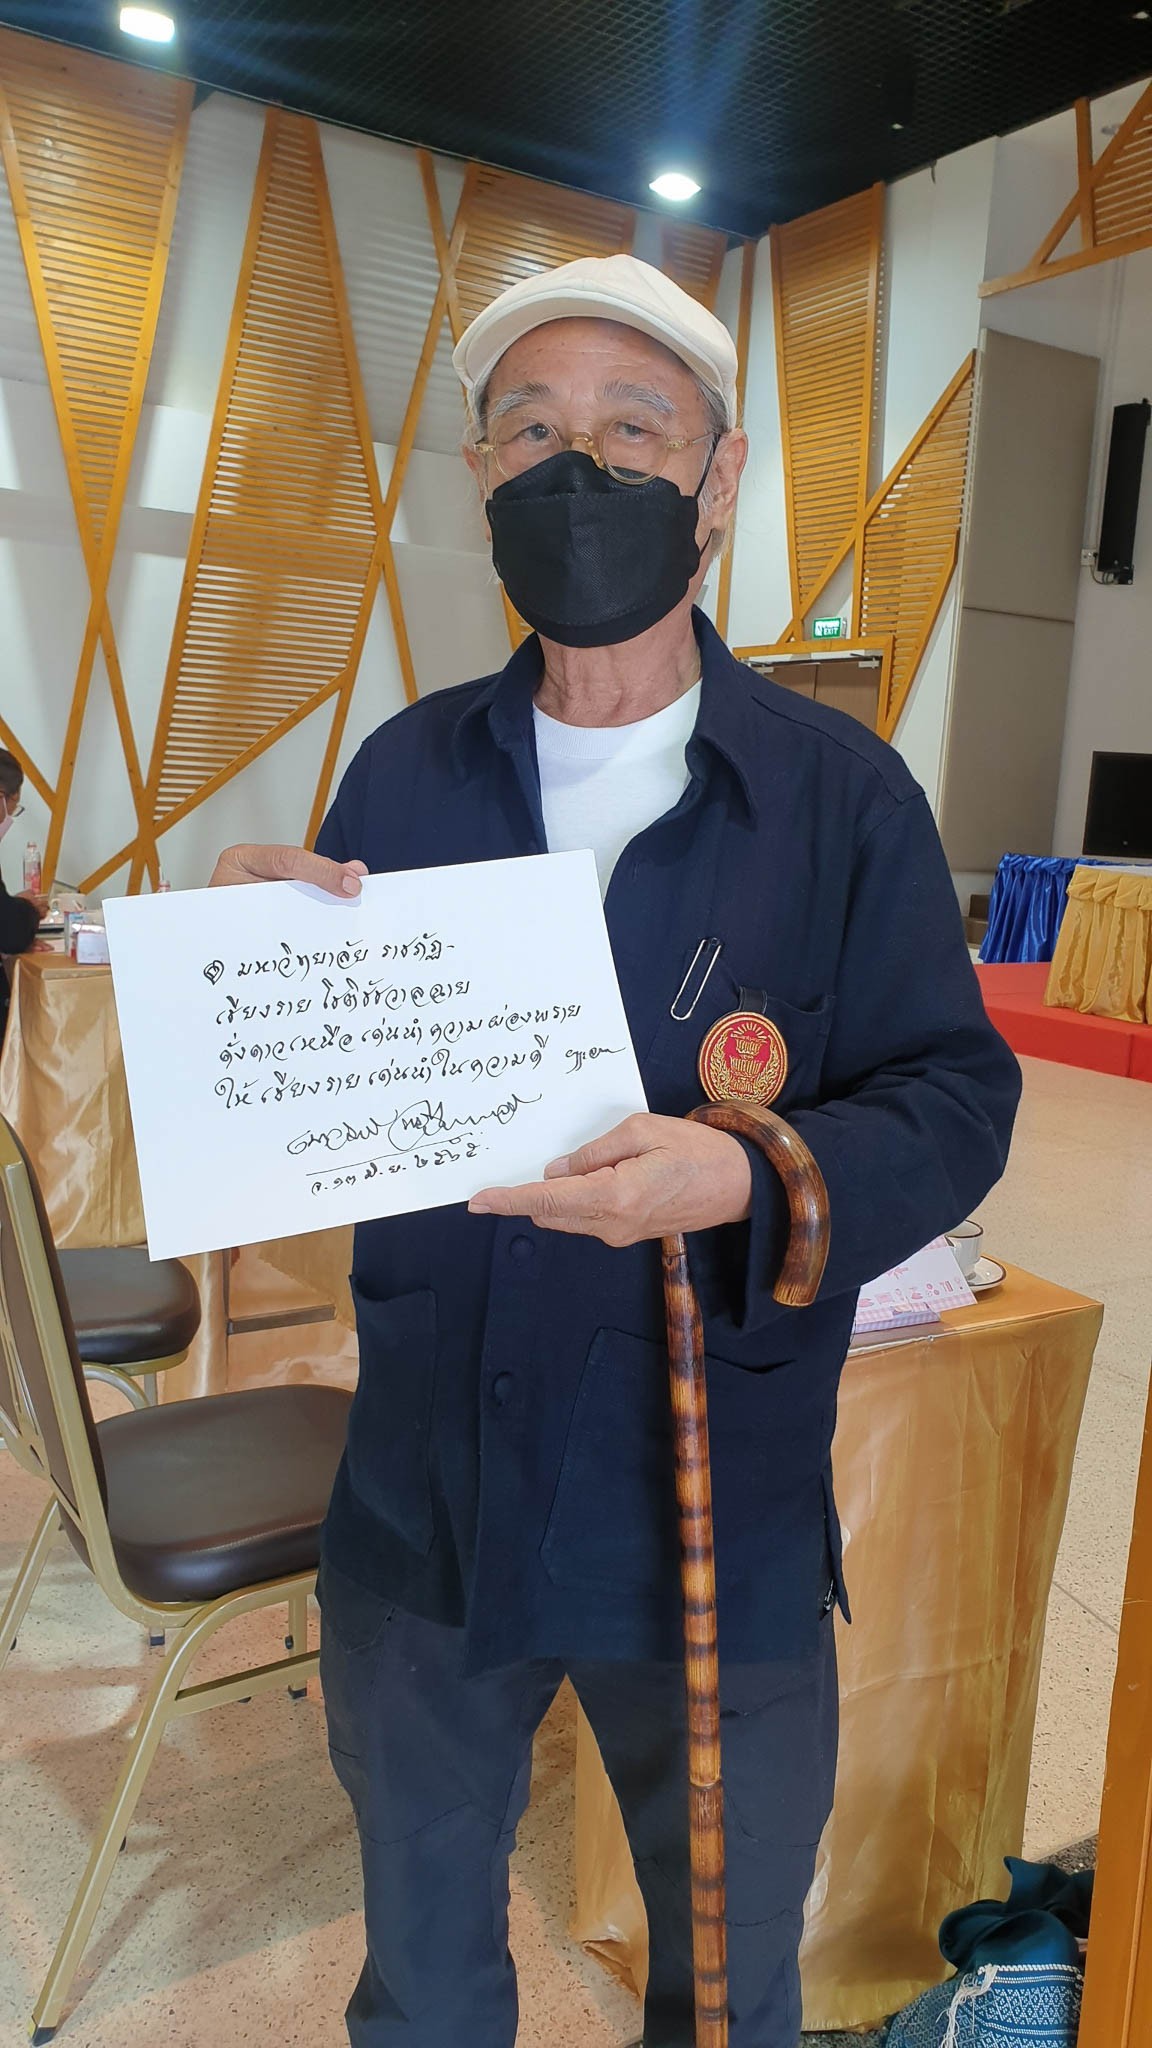 ๏ มหาวิทยาลัย ราชภัฏ-
เชียงราย โชติชัชวาลฉาย
ดั่งดาวเหนือ เด่นนำ ความผ่องพราย
ให้ เชียงราย เด่นนำ ในความดี
จ. ๑๓ มิ.ย. ๒๕๖๕.
EXIT